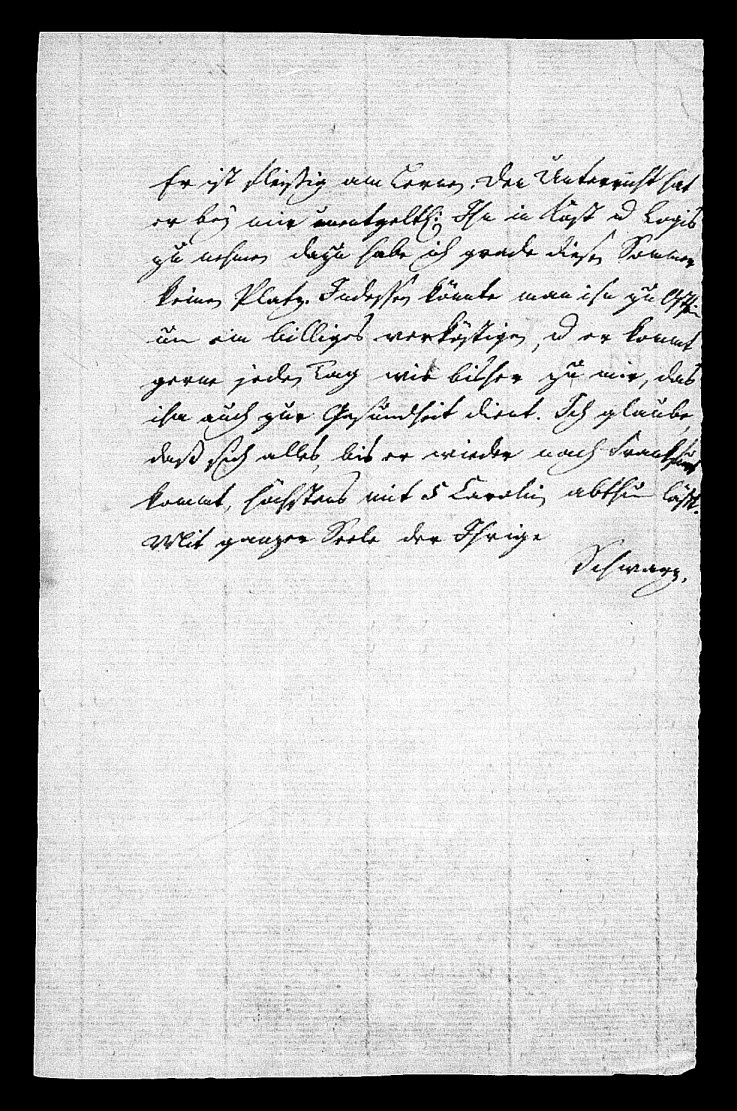 Er ist fleißig am Lernen. Den Unterricht hat
er bey mir unentgeltl: Ihn in Kost u Logis
zu nehmen dazu habe ich grade diesen Sommer
keinen Platz. Indessen könnte man ihn zu
um ein billiges verköstigen, u er kommt
gerne jeden Tag wie bisher zu mir, das
ihm auch zur Gesundheit dient. Ich glaube,
daß sich alles, bis er wieder nach Frankfurt
kommt, höchstens mit 5 Carolin abthun läßt.
Mit ganzer Seele der Ihrige
Schwarz.